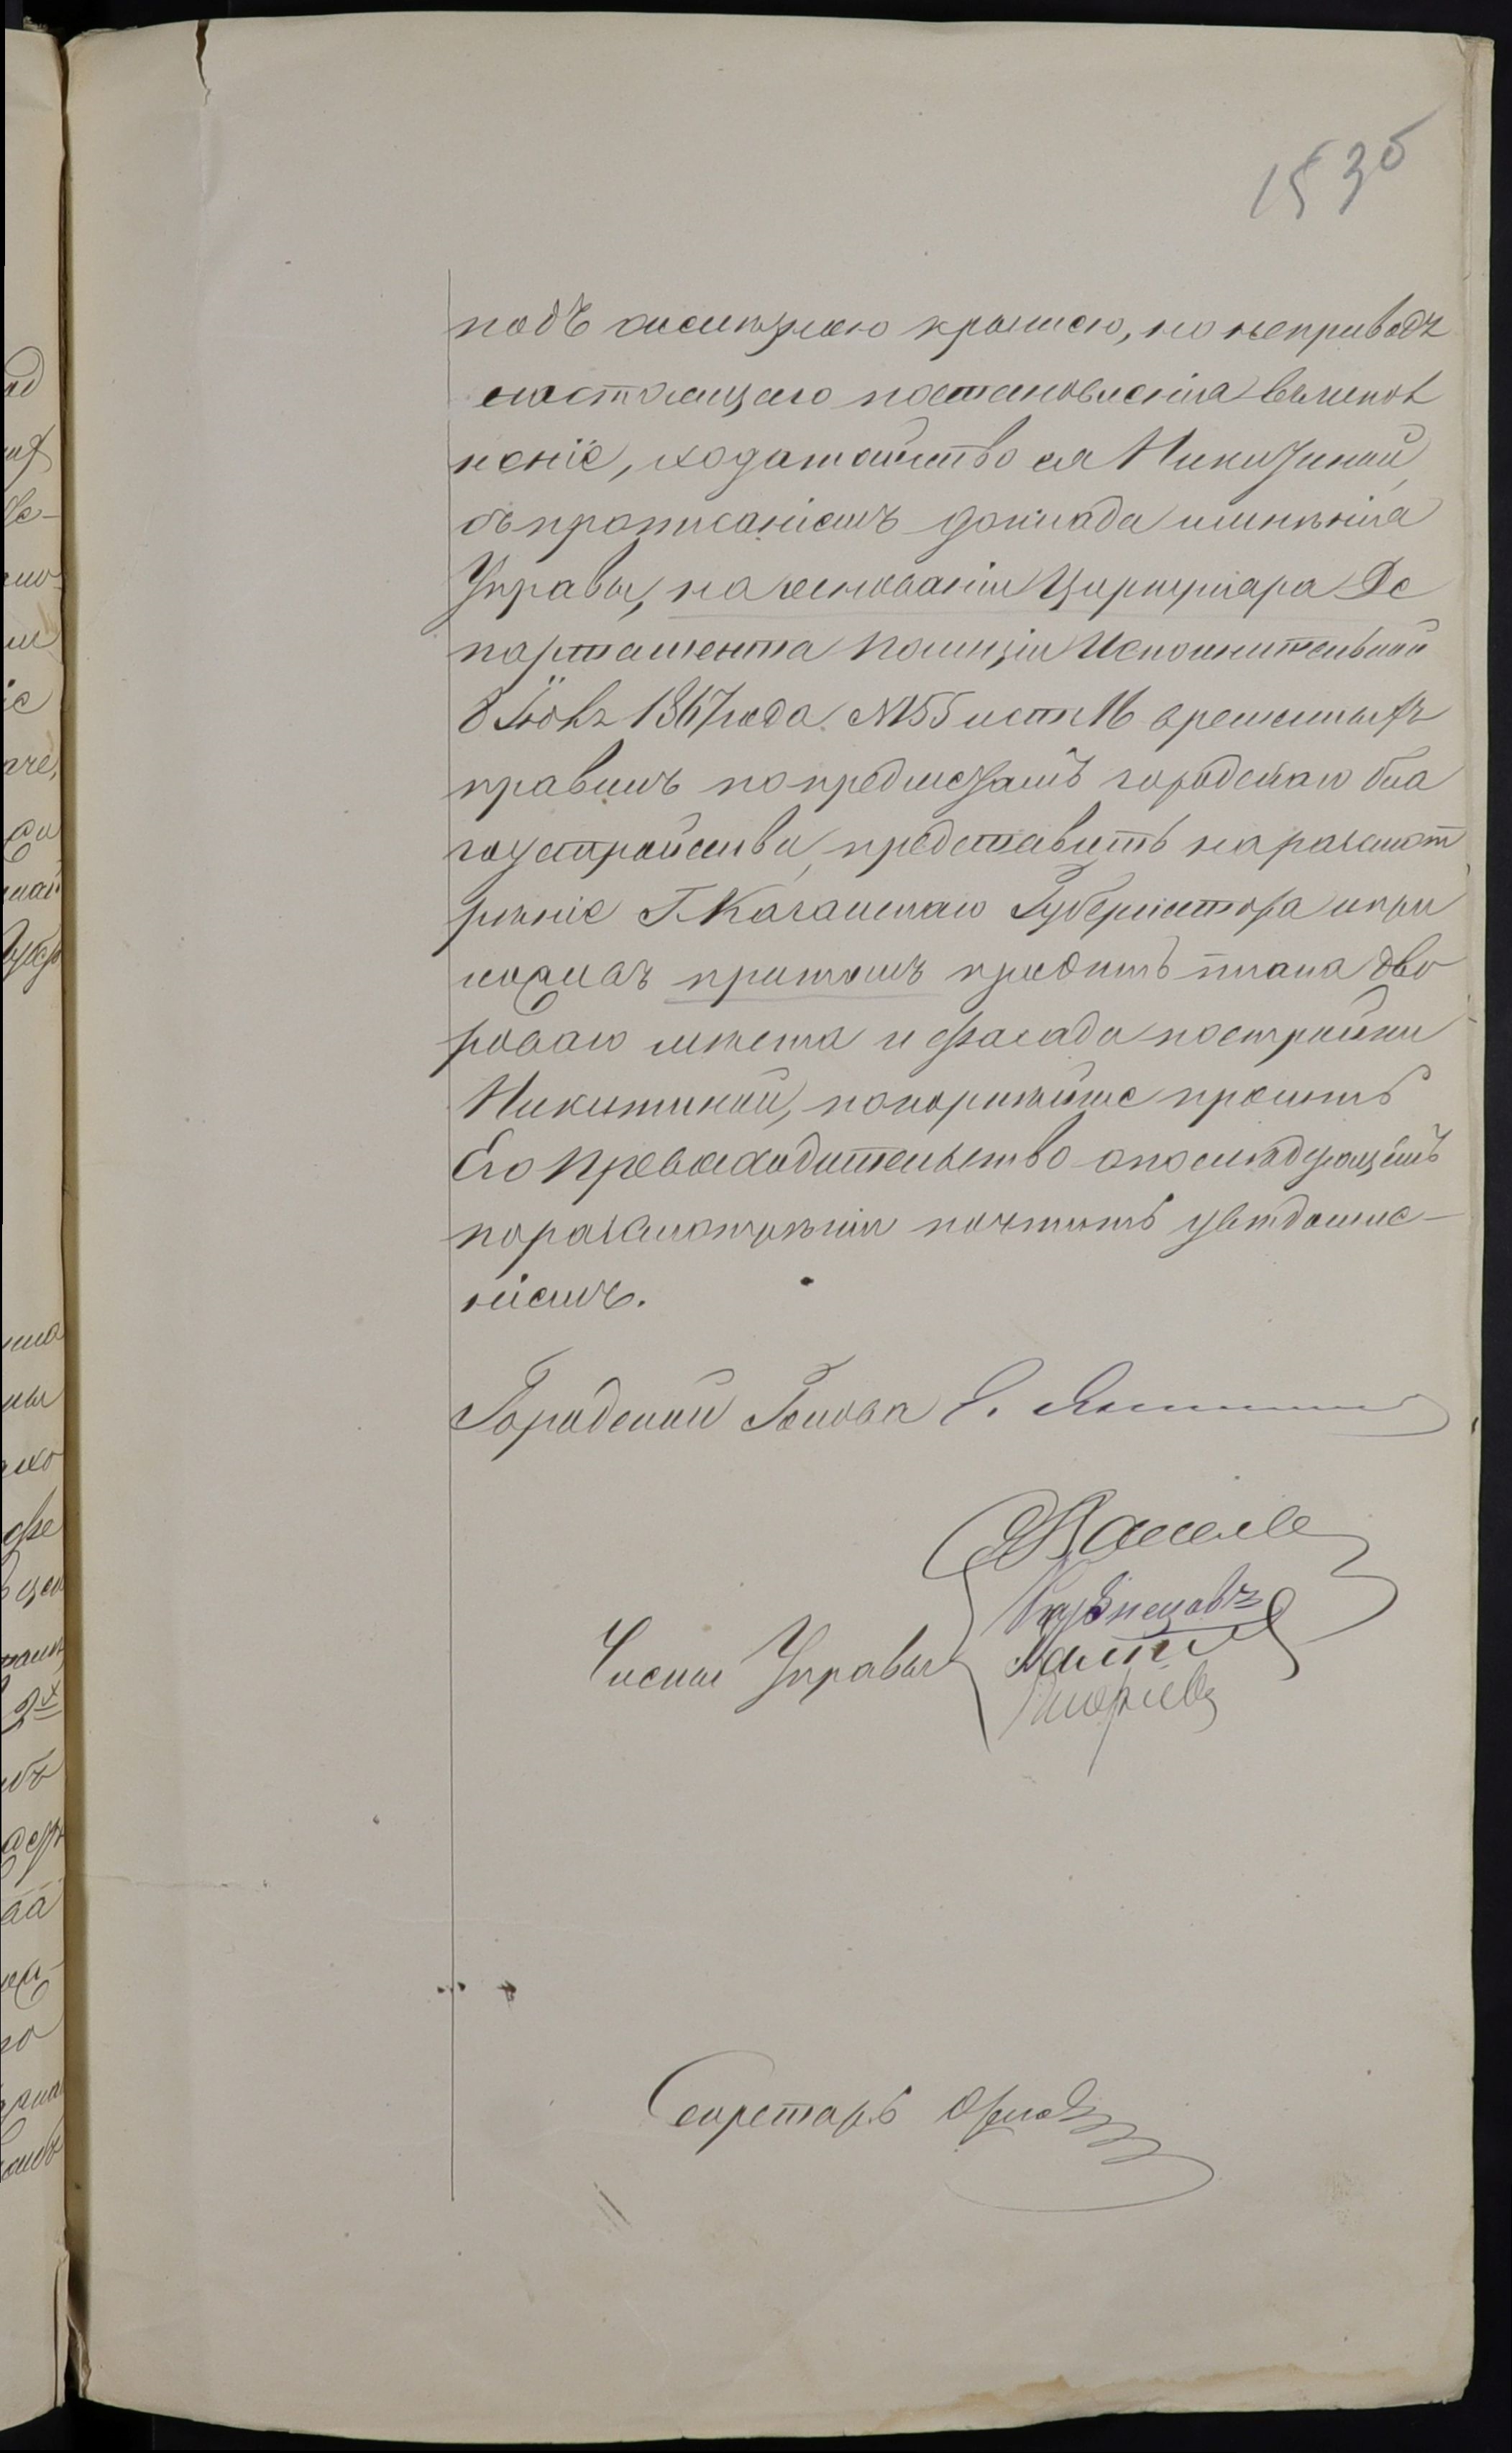 153б
подъ желѣзною крышею, но неприводя
настоящаго постановленія въ испол
неніе, ходатайство ея Никитиной,
съ прописаніемъ доклада и мнѣнія
Управы, на основаніи Циркуляра Де
партамента Полиціи Исполнительной
8 Іюня 1867 года № 155 и ст. 16 временныхъ
правилъ по предметамъ городскаго бла
гоустройства, представить на разсмот
рѣніе Г. Казанскаго Губернатора и при
ложивъ при томъ кредитъ плана дво
роваго мѣста и фасада постройки
Никитиной, покорнѣйше просить
Его Превосходительство о послѣдующемъ
по разсмотрѣнии почтить увѣдомле-
ніемъ.
Городской Голова
Члены Управы
Кузнецовъ
Секретарь Орловъ